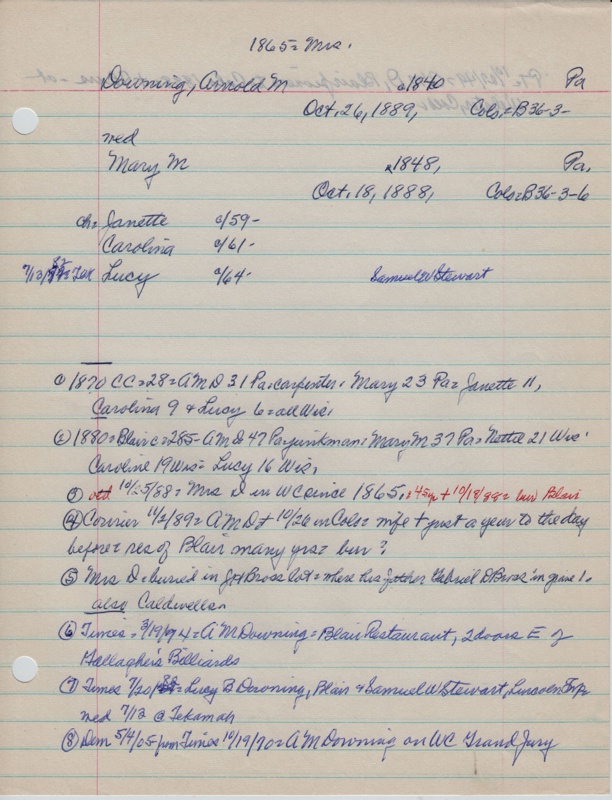 1865 = Mrs.
Downing, Arnold M c1840 Pa
Oct. 26, 1889, Cols = B36-3-
med
Mary M c1848, Pa.
Oct. 18, 1888, Cols = B36-3-6
ch = Janette c/59-
Carolina c/61-
7/13/ = Tek Lucy c/64- Samuel W Stewart
① 1870 CC = 28 = A M D 31 Pa. carpenter. Mary 23 Pa = Janette 11,
Carolina 9 & Lucy 6 = all Wis.
② 1880 = Blair c = 285 - A M D 47 Pa = junkman = Mary M 37 Pa = Nettie 21 Wis.
Caroline 19 Wis = Lucy 16 Wis.
③ 10/25/88 = Mrs D in WC since 1865. = 45 yr + 10/18/88 = bur Blair
④ Courier 11/2/89 = A M D + 10/26 in Cols = wife + just a year to the day
before = res of Blair many yrs = bur?
⑤ Mrs D = buried in Bross lot = where his father Gabriel D Bross in grave 1 =
also Caldwells
⑥ Times = 3/19/74 = A M Downing = Blair Restaurant, 2 doors E of
Gallagher's Billiards
⑦ Times 7/20/ = Lucy B Downing, Blair & Samuel W Stewart, Lincoln Twp
med 7/13 @ Tekamah
⑧ Dem 5/4/05 from Times 10/19/70 = A M Downing on WC Grand Jury